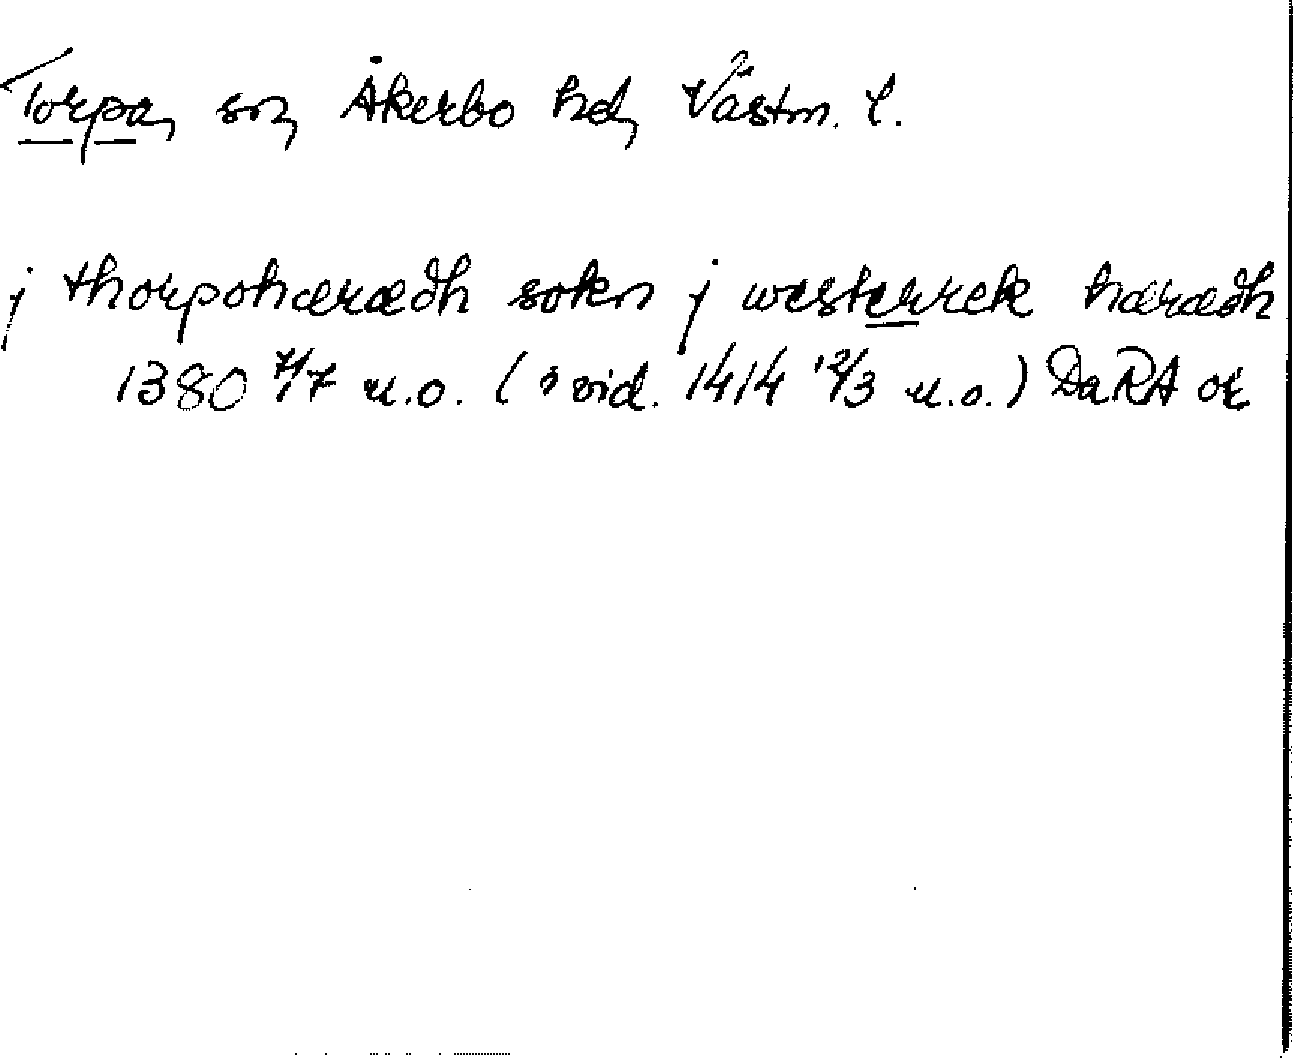 Torpa, sn, Åkerbo hd, Västm. l.
j thorpohærædh sokn j westerrek hærædh
1380 7/7 u.o. ( i vid. 1414 12/3 u.o.) DaRA or